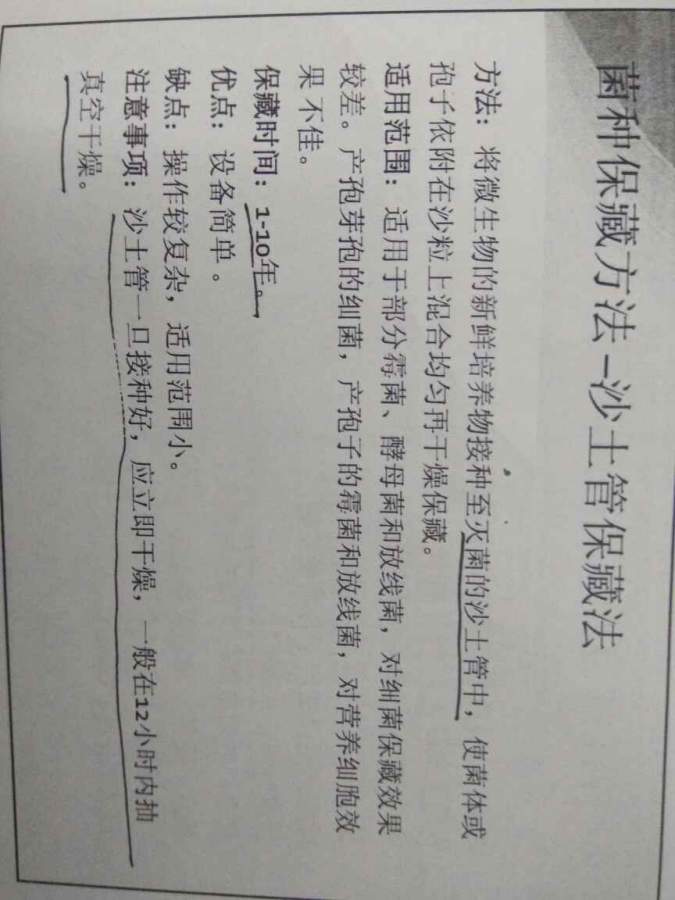 菌种保藏方法–沙土管保藏法
方法：将微生物的新鲜培养物接种至灭菌的沙土管中，使菌体或
孢子依附在沙粒上混合均匀再干燥保藏。
适用范围：适用于部分霉菌、酵母菌和放线菌，对细菌保藏效果
较差。产孢芽孢的细菌，产孢子的霉菌和放线菌，对营养细胞效
果不佳。
保藏时间：1-10年。
优点：设备简单。
缺点：操作较复杂，适用范围小。
注意事项：沙土管一旦接种好，应立即干燥，一般在12小时内抽
真空干燥。